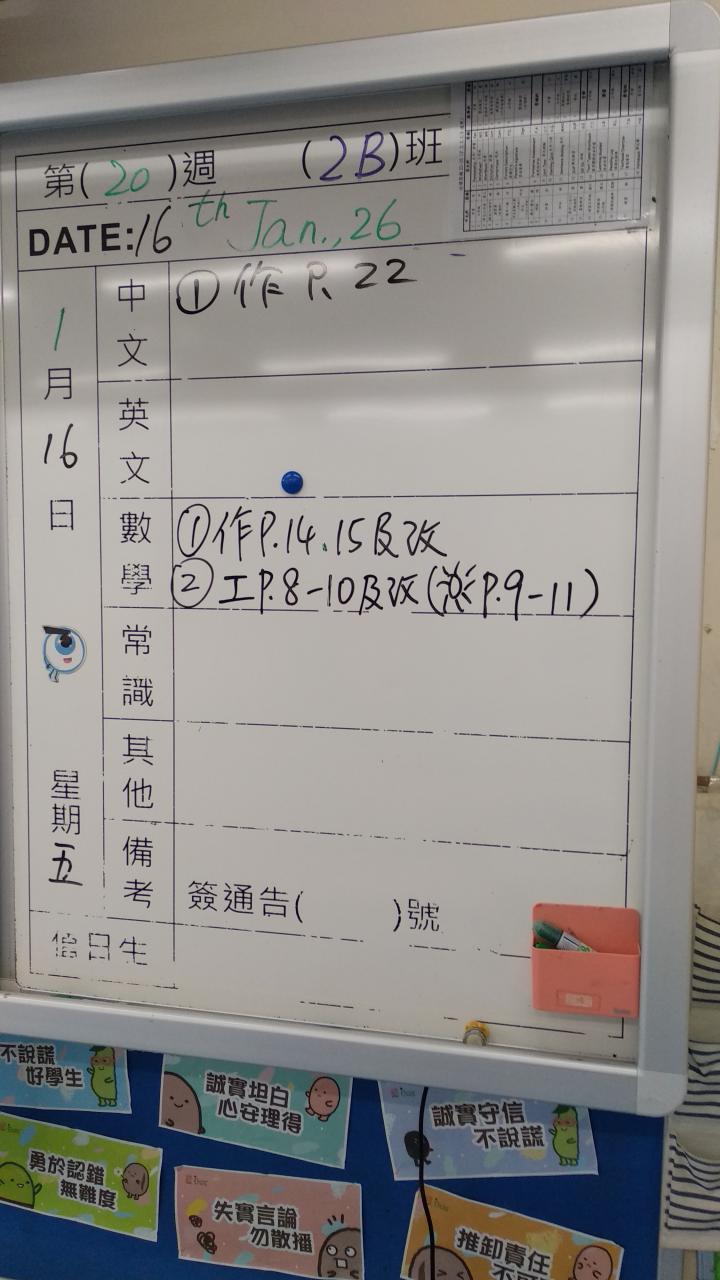 第(20)週 (2B)班
DATE:16th Jan.,26
1月16日 星期五
中文
① 作 P. 22
英文
數學
①作P.14.15及改
②工P.8-10及改( P.9-11)
常識
其他
備考
簽通告( )號
值日生
不說謊
好學生
誠實坦白
心安理得
誠實守信
不說謊
勇於認錯
無難度
失實言論
勿散播
推卸責任